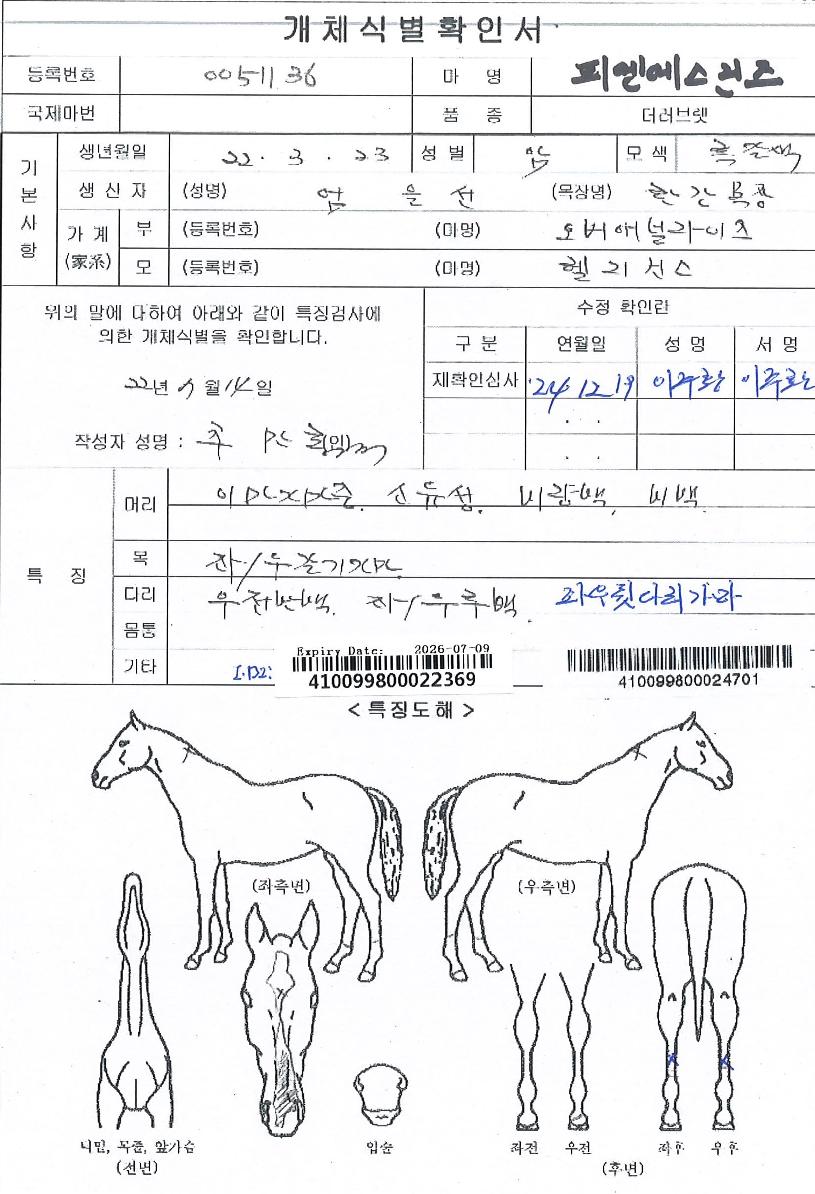 개체식별확인서
등록번호 0051136 마 명 피엔에스런즈
국제마번 품 종 더러브렛
기본사항
생년월일 22. 3. 23 성별 암 모색 흑갈색
생 산 자 (성명) 엄 을 선 (목장명)
가 계 (家系) 부 (등록번호) (마명) 오버애널라이즈
모 (등록번호) (마명) 헬리선스
위의 말에 대하여 아래와 같이 특징검사에
의한 개체식별을 확인합니다.
22년 월 14일
작성자 성명 : (인)
수정 확인란
구 분 연월일 성 명 서 명
재확인심사 '24 12 19
특 징
머리 비량백, 비백
목 좌/우
다리 좌/우 좌우뒷다리가마
몸통
기타 I.D2:
Expiry Date: 2026-07-09
410099800022369
410099800024701
< 특징도해 >
(좌측면) (우측면)
턱밑, 목줄, 앞가슴 입술 좌전 우전 좌후 우후
(전면) (후면)